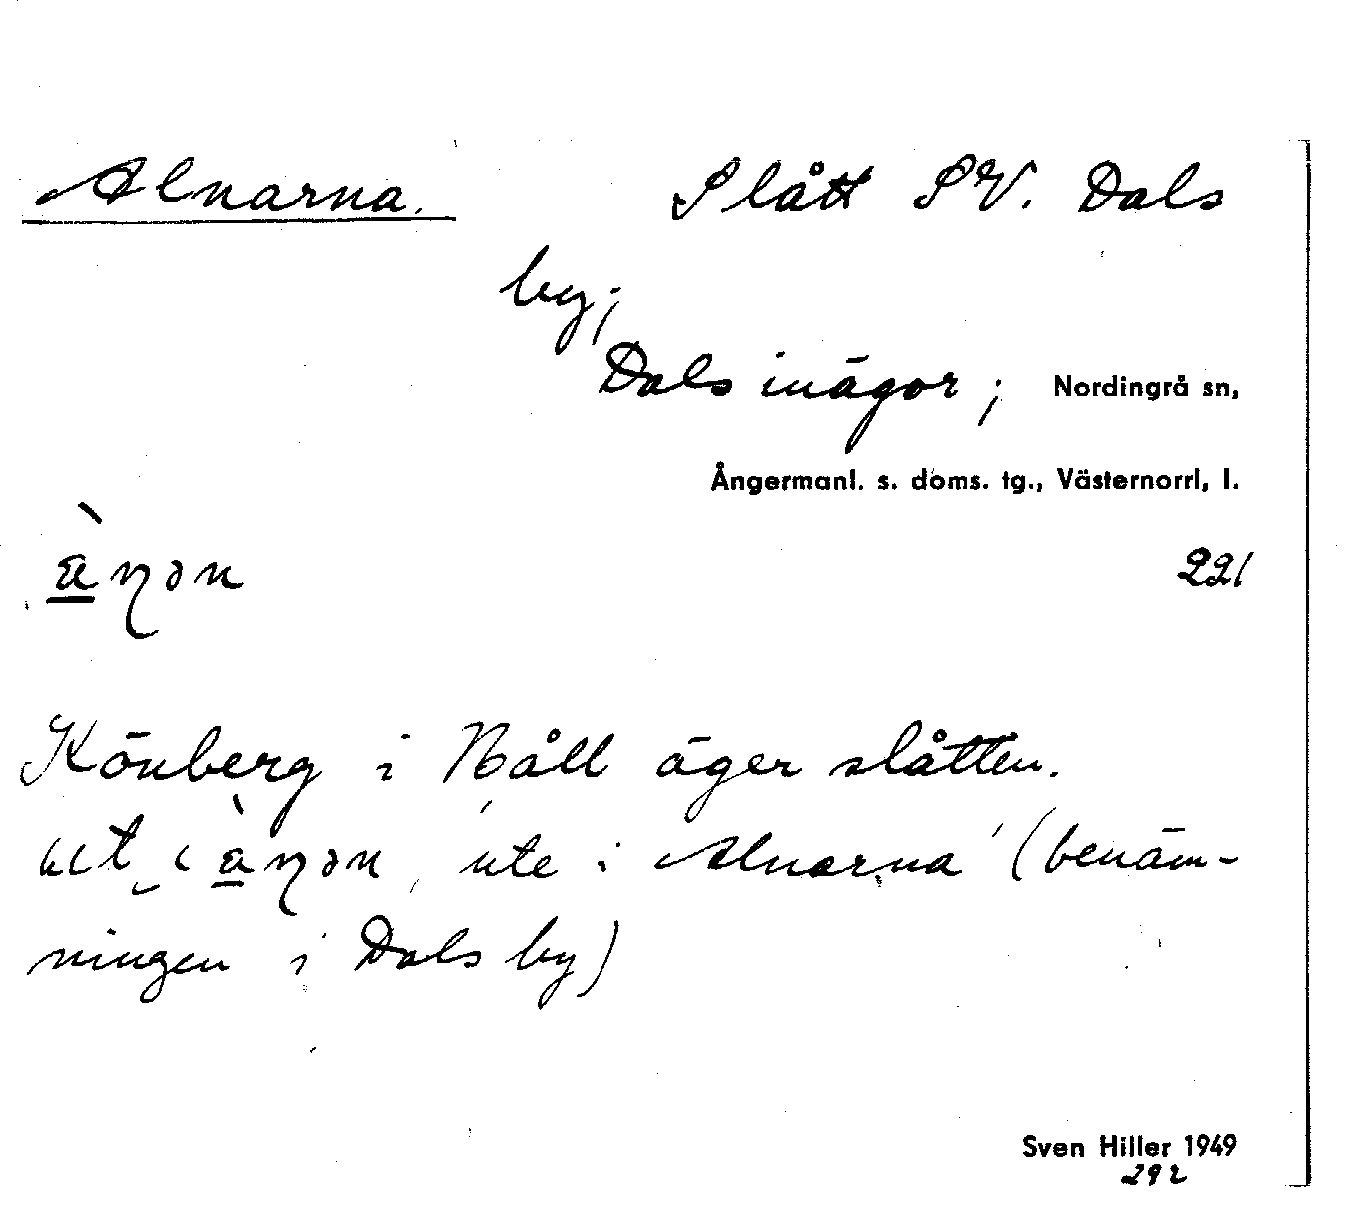 Alnarna. Slått SV. Dals
by;
Dals inägor; Nordingrå sn,
Ångermanl. s. doms. tg., Västernorrl. l.
221
Könberg i Håll äger slåtten.
ute i Alnarna' (benäm-
ningen i Dals by)
Sven Hiller 1949
292